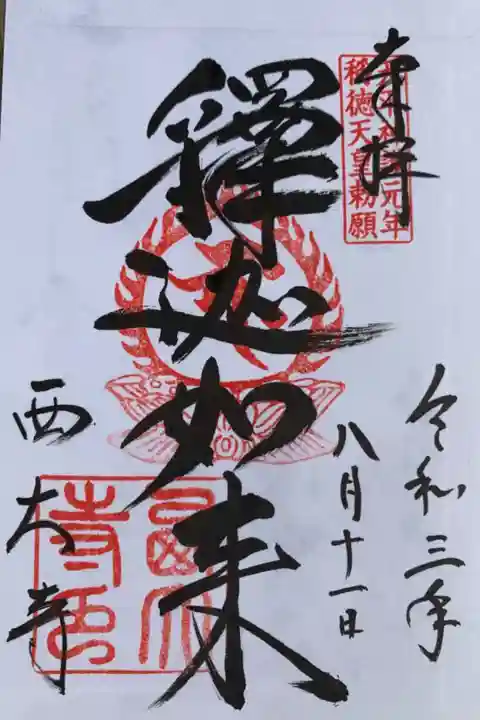 奉拝
天平神護元年
称徳天皇勅願
令和三年
八月十一日
釋迦如来
西大寺